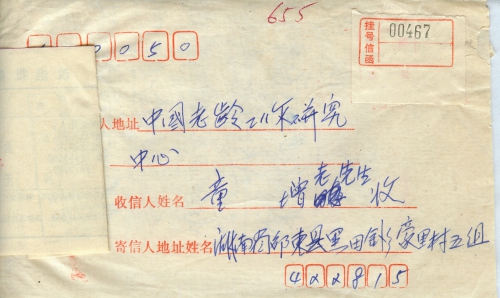 655
挂号信函 00467
100050
人地址 中國老龄工作研究
中心
收信人姓名 童 增 老先生 收
寄信人地址姓名 湖南省邵東县黑田铺乡蒙里村五组
422815